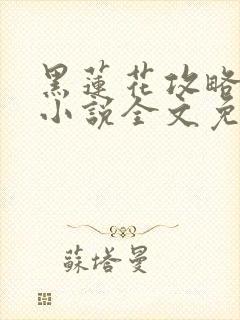 黑蓮花攻略
小說全文免
蘇塔曼